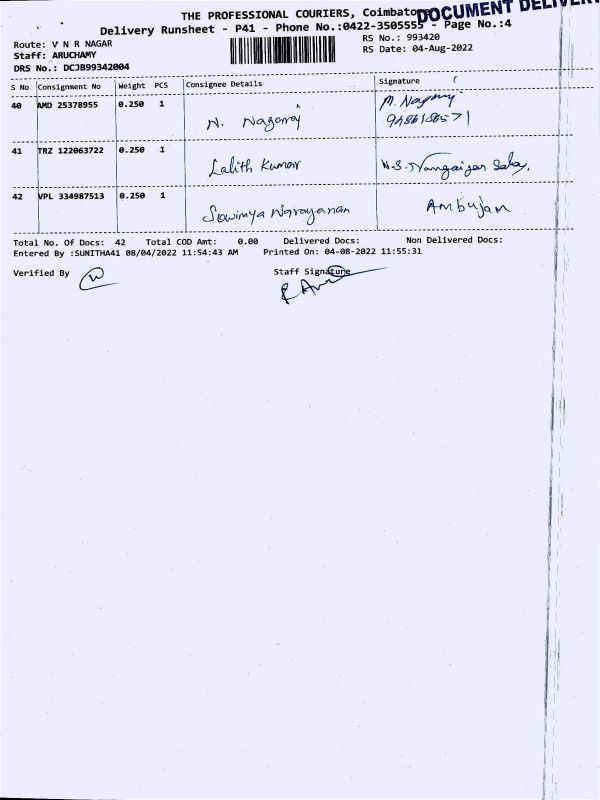 THE PROFESSIONAL COURIERS, Coimbatore
DOCUMENT DELIVERY
Delivery Runsheet - P41 - Phone No.:0422-3505555 - Page No.:4
Route: V N R NAGAR
RS No.: 993420
Staff: ARUCHAMY
RS Date: 04-Aug-2022
DRS No.: DCJB99342004
S No Consignment No Weight PCS Consignee Details Signature
40 AMD 25378955 0.250 1 N. Nagaraj M. Nagaraj
41 TRZ 122063722 0.250 1 Lalith Kumar
42 VPL 334987513 0.250 1 Sowimya Narayanan Ambujan
Total No. Of Docs: 42 Total COD Amt: 0.00 Delivered Docs: Non Delivered Docs:
Entered By :SUNITHA41 08/04/2022 11:54:43 AM Printed On: 04-08-2022 11:55:31
Verified By Staff Signature